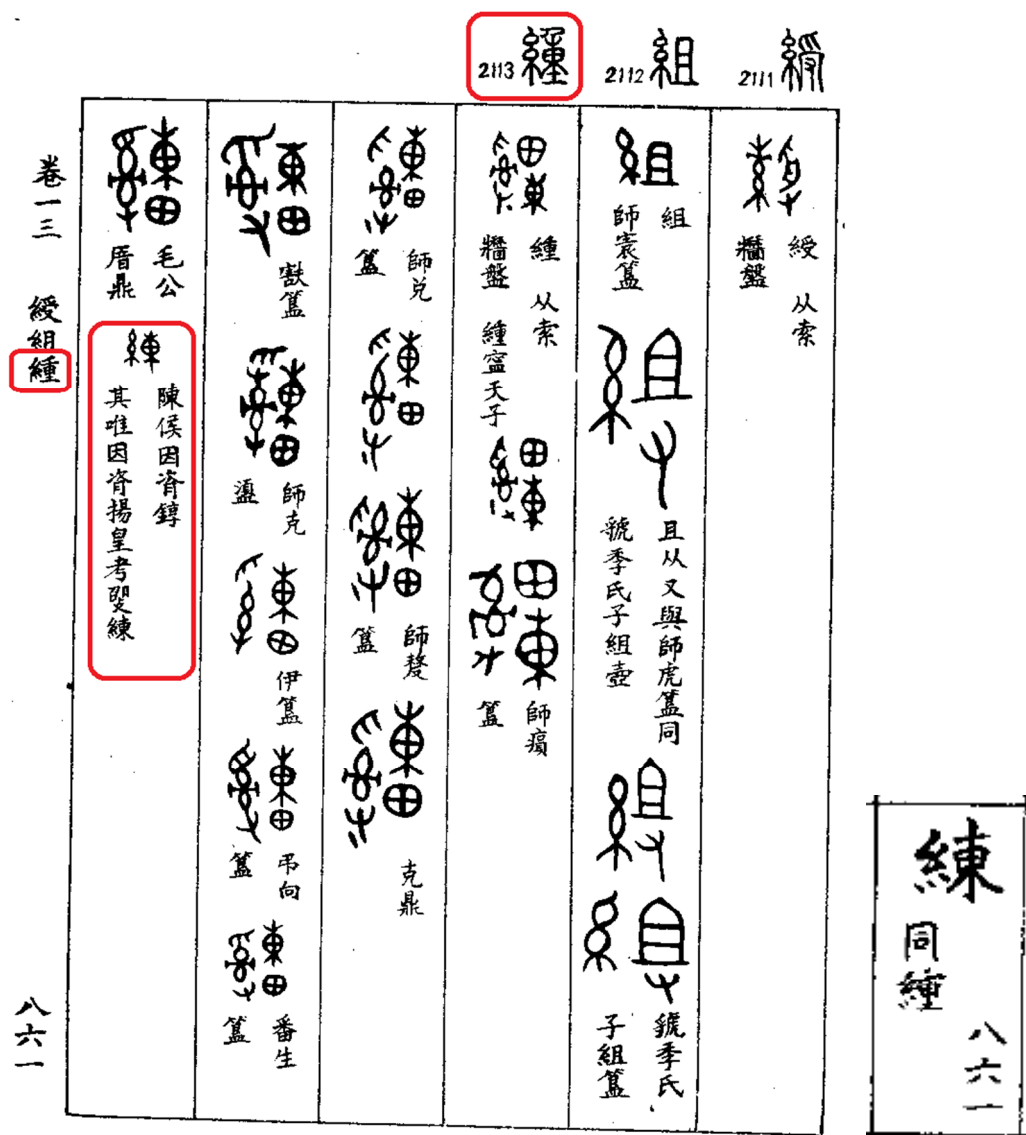 綬 2111
組 2112
緟 2113
綬 从索
牆盤
組
師寰簋
且从又與師虎簋同
虢季氏子組壺
虢季氏
子組簋
緟 从索
牆盤 緟寍天子
師𤸫
簋
師兌
簋
師𠩺
簋
克鼎
㝬簋
師克
盨
伊簋
弔向
簋
番生
簋
毛公
㫗鼎
陳侯因𬁼錞
其唯因𬁼揚皇考卲練
卷一三 綬組緟
八六一
練
同緟
八六一